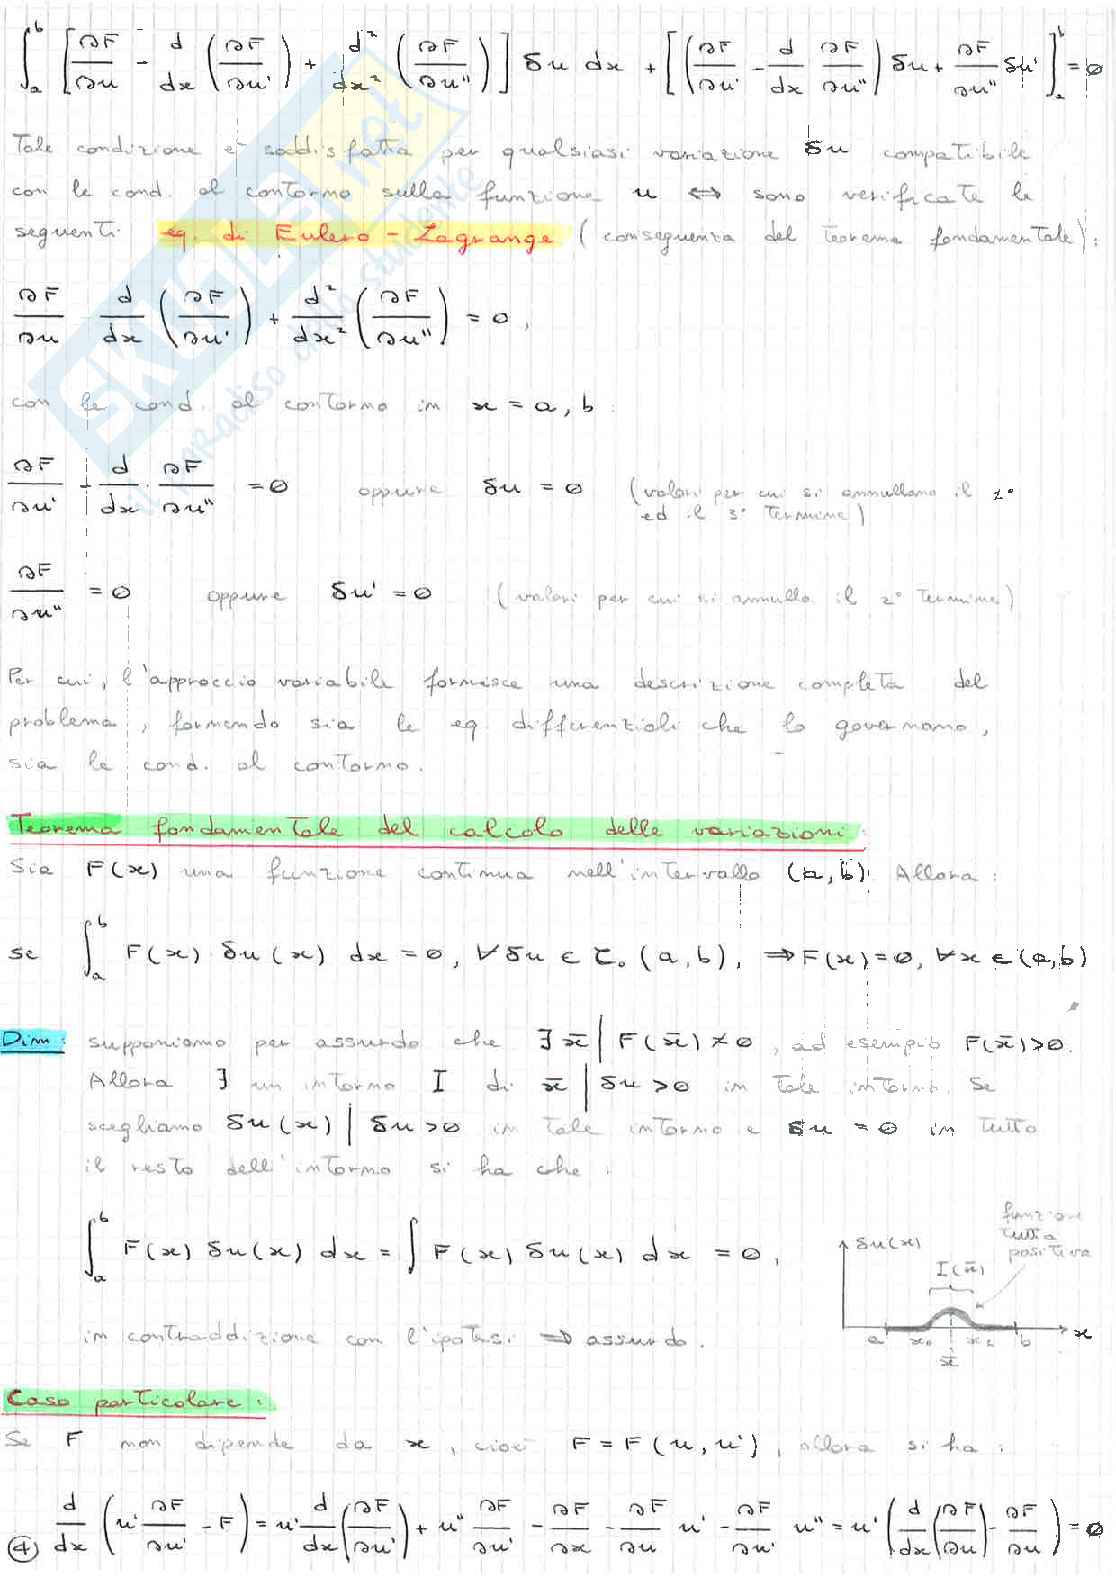 ∫_a^b [∂F/∂u - d/dx (∂F/∂u') + d²/dx² (∂F/∂u'')] δu dx + [(∂F/∂u' - d/dx ∂F/∂u'') δu + ∂F/∂u'' δu']_a^b = 0
Tale condizione è soddisfatta per qualsiasi variazione δu compatibile
con le cond. al contorno sulla funzione u ⟺ sono verificate le
seguenti eq. di Eulero - Lagrange (conseguenza del teorema fondamentale):
∂F/∂u - d/dx (∂F/∂u') + d²/dx² (∂F/∂u'') = 0,
con le cond. al contorno in x = a, b:
∂F/∂u' - d/dx ∂F/∂u'' = 0 oppure δu = 0 (valori per cui si annullano il 1°
ed il 3° termine)
∂F/∂u'' = 0 oppure δu' = 0 (valori per cui si annulla il 2° termine)
Per cui, l'approccio variabile fornisce una descrizione completa del
problema, fornendo sia le eq. differenziali che lo governano,
sia le cond. al contorno.
Teorema fondamentale del calcolo delle variazioni:
Sia F(x) una funzione continua nell'intervallo (a,b). Allora:
se ∫_a^b F(x) δu(x) dx = 0, ∀ δu ∈ C₀ (a,b), ⇒ F(x) = 0, ∀x ∈ (a,b)
Dim: supponiamo per assurdo che ∃ x̄ | F(x̄) ≠ 0, ad esempio F(x̄) > 0.
Allora ∃ un intorno I di x̄ | δu > 0 in tale intorno. Se
scegliamo δu(x) | δu > 0 in tale intorno e δu = 0 in tutto
il resto dell'intorno si ha che:
∫_a^b F(x) δu(x) dx = ∫ F(x) δu(x) dx = 0,
in contraddizione con l'ipotesi ⇒ assurdo.
funzione
tutta
positiva
δu(x)
I(x̄)
a x₀ x̄ x₂ b x
Caso particolare:
Se F non dipende da x, cioè F = F(u, u'), allora si ha:
④ d/dx (u' ∂F/∂u' - F) = u' d/dx (∂F/∂u') + u'' ∂F/∂u' - ∂F/∂x - ∂F/∂u u' - ∂F/∂u' u'' = u' (d/dx (∂F/∂u) - ∂F/∂u) = 0
SKUOLA.net
il paradiso dello studente